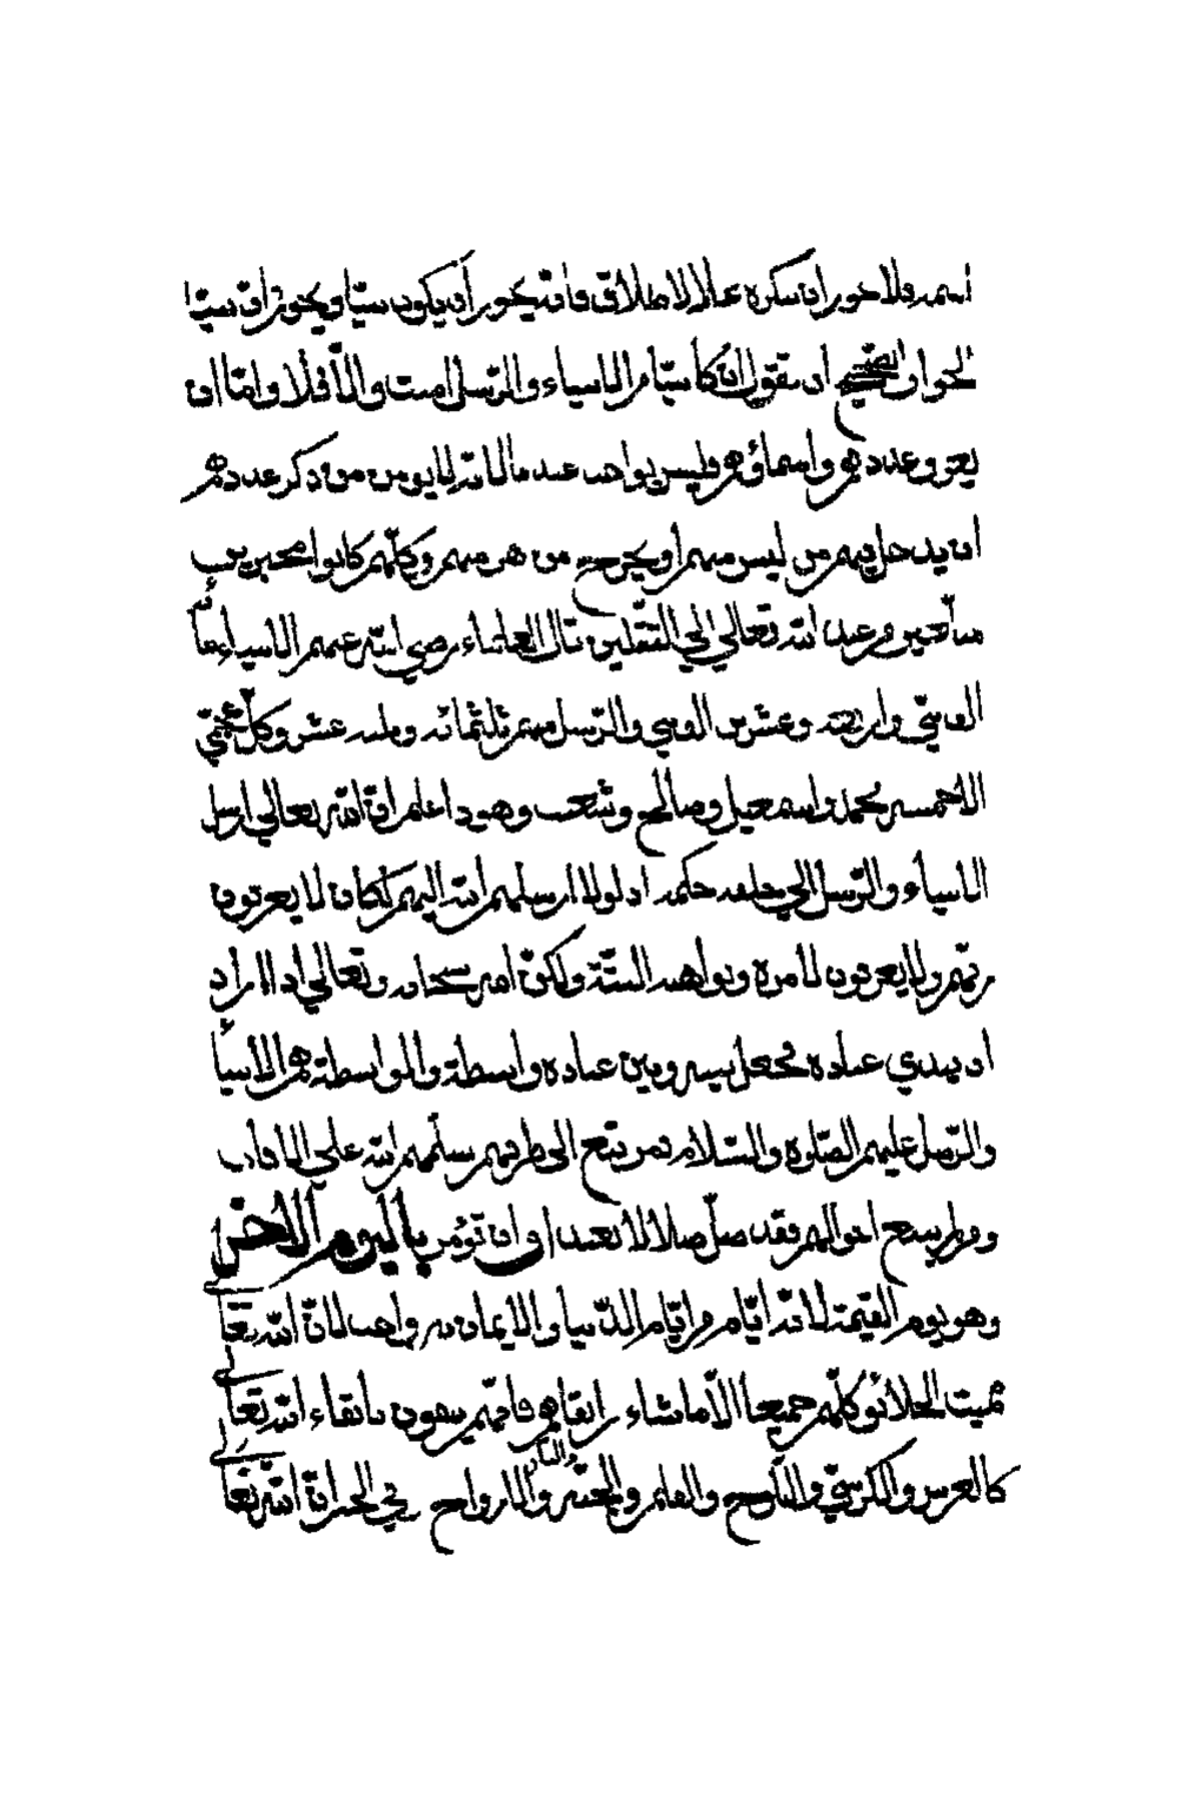 اسمه فلا يجوز ان ينكره على الاطلاق فانه يجوز أن يكون نبيا ويجوز ان نبيا
الجواب الصحيح ان يقول ان كان نبيا من الانبياء والرسل امنت والا فلا واما ان
يعرف عددهم واسماؤهم فليس بواجب عند مالا انه لا يومن من ذكر عددهم
ان يدخل فيهم من ليس منهم او يخرج من هو منهم وكلهم كانوا مخبرين
صادقين من عند الله تعالى الى الثقلين قال العلماء رضي الله عنهم الانبياء مائة
الف نبي واربعة وعشرين الف نبي والرسل منهم ثلثمائة وثلثة عشر وكل عجمي
الا خمسة محمد واسمعيل وصالح وشعيب وهود اعلم ان الله تعالى ارسل
الانبياء والرسل الى خلقه حكمة اذ لولا ارسلهم الله اليهم لكان لا يعرفون
ربهم ولا يعرفون لامره ونواهيه السنة ولكن امر سبحانه وتعالى اذا اراد
ان يهدي عباده فجعل بينه وبين عباده واسطة والواسطة هم الانبياء
والرسل عليهم الصلوة والسلام فمن يتبع الى طريهم سلمهم الله على الافات
ومن لم يسمع اقوالهم فقد ضل ضلالا بعيدا وان تؤمن باليوم الاخر
وهو يوم القيمة لانه ايام من ايام الدنيا والايمان به واجب لان الله تعالى
يميت الخلائق كلهم جميعا الا ما شاء بقاهم فانهم يبقون بابقاء الله تعالى
كالعرش والكرسي واللوح والقلم والجنة والنار والارواح في الخبر ان الله تعا